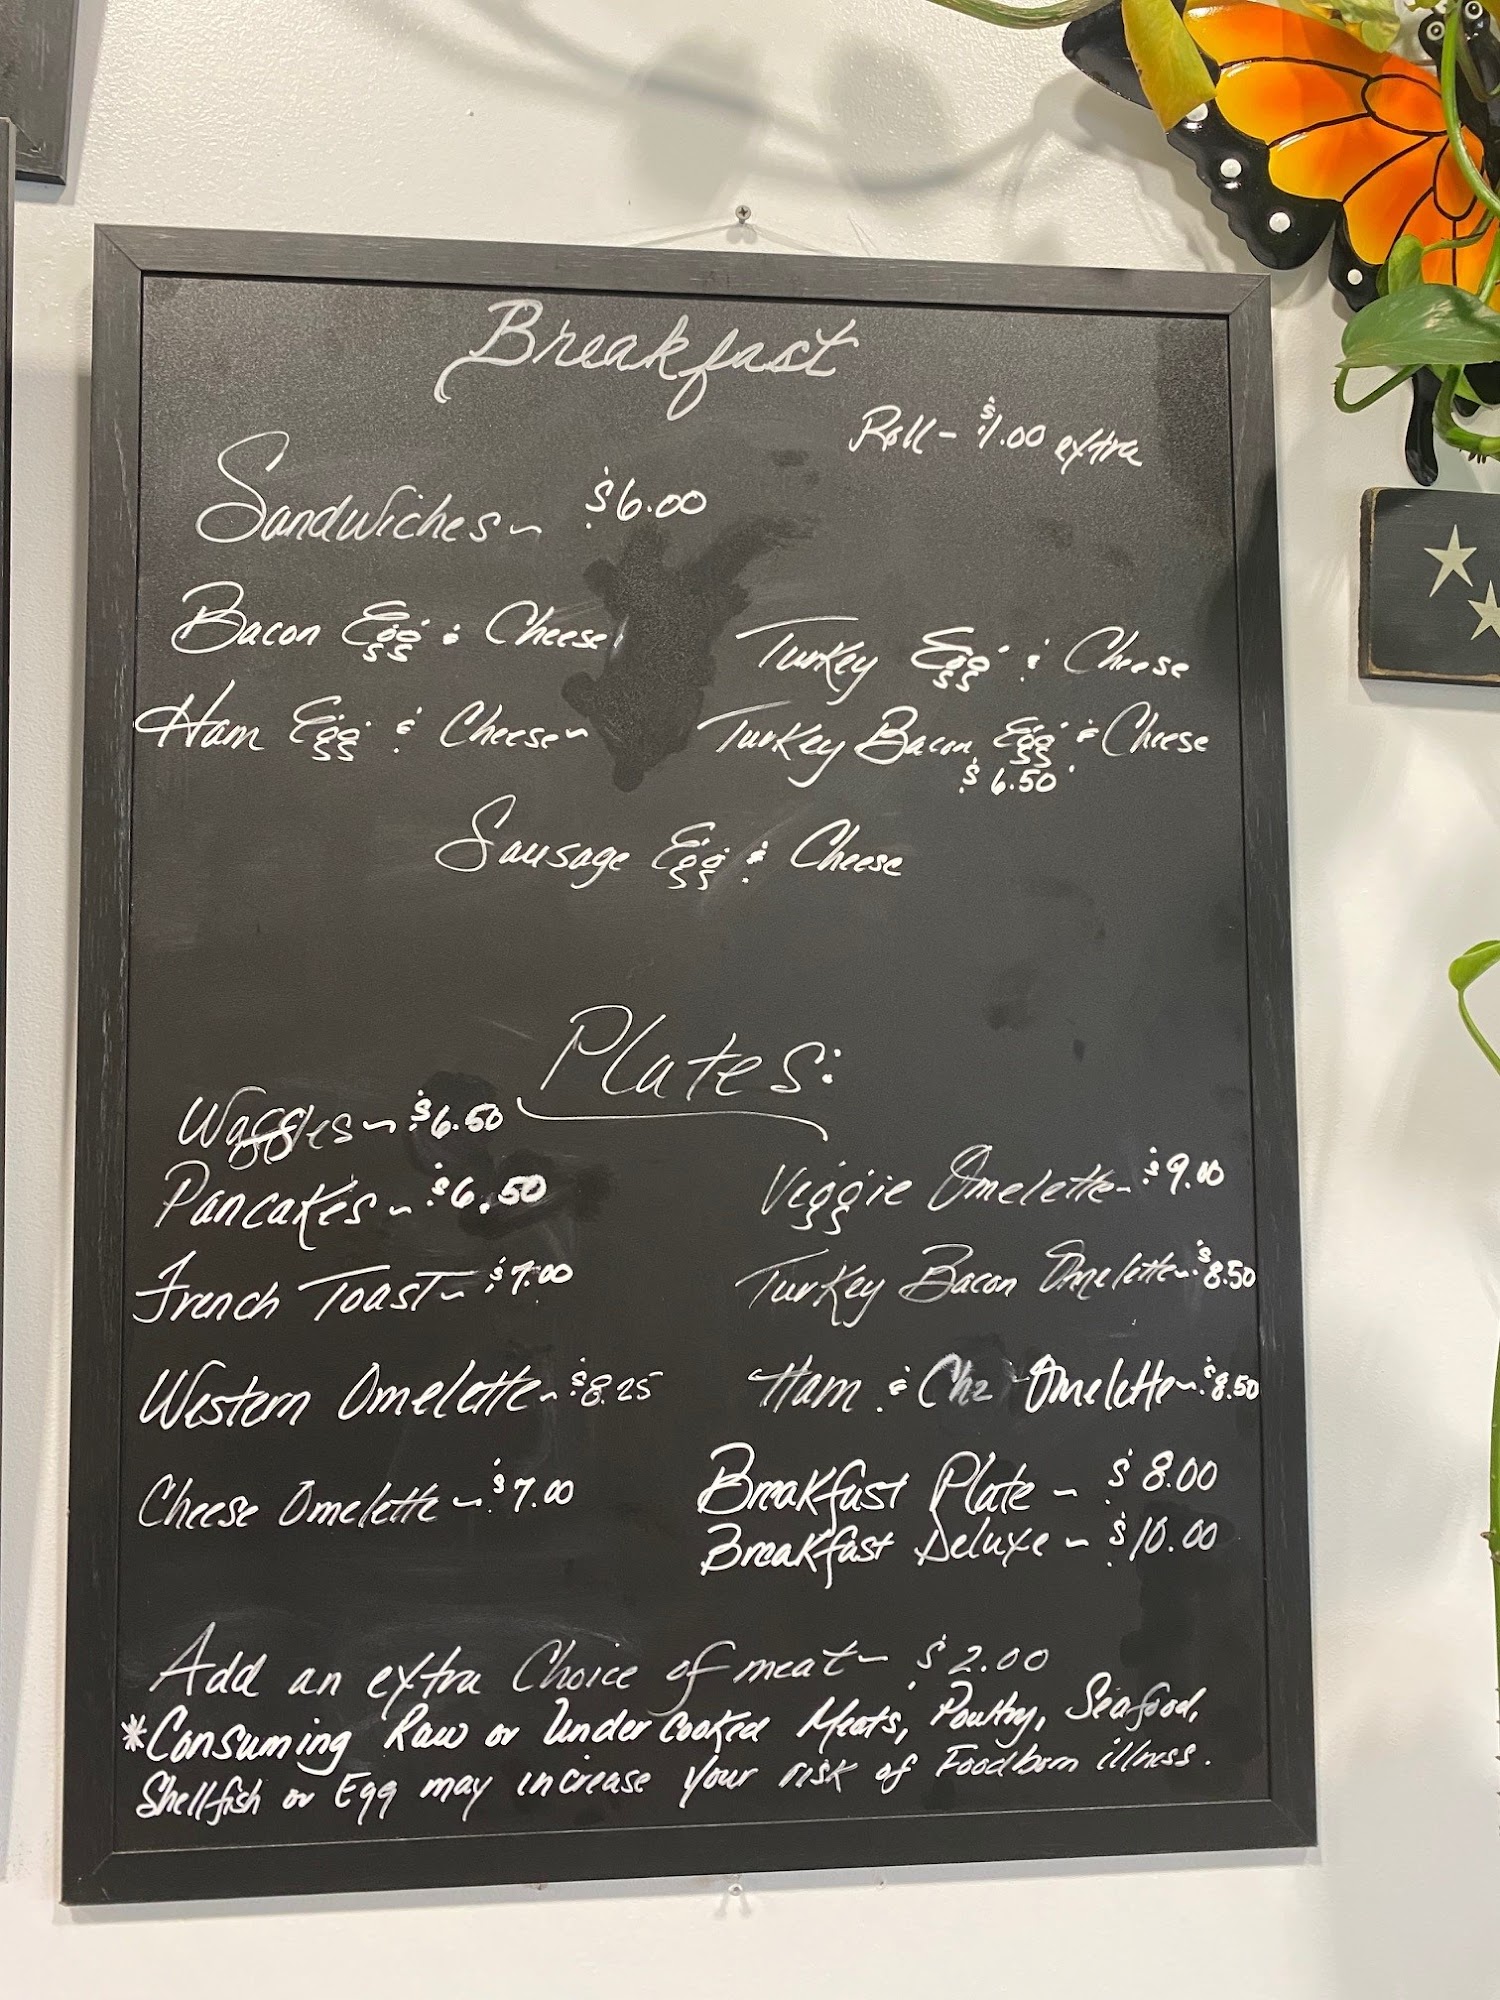 Breakfast
Roll - $1.00 extra
Sandwiches ~ $6.00
Bacon Egg & Cheese
Turkey Egg & Cheese
Ham Egg & Cheese ~
Turkey Bacon Egg & Cheese
$6.50
Sausage Egg & Cheese
Plates:
Waffles ~ $6.50
Pancakes ~ $6.50
French Toast ~ $7.00
Western Omelette ~ $8.25
Cheese Omelette ~ $7.00
Veggie Omelette ~ $9.00
Turkey Bacon Omelette ~ $8.50
Ham & Chz Omelette ~ $8.50
Breakfast Plate ~ $8.00
Breakfast Deluxe ~ $10.00
Add an extra Choice of meat ~ $2.00
*Consuming Raw or Under Cooked Meats, Poultry, Seafood,
Shellfish or Egg may increase your risk of Foodborn illness.